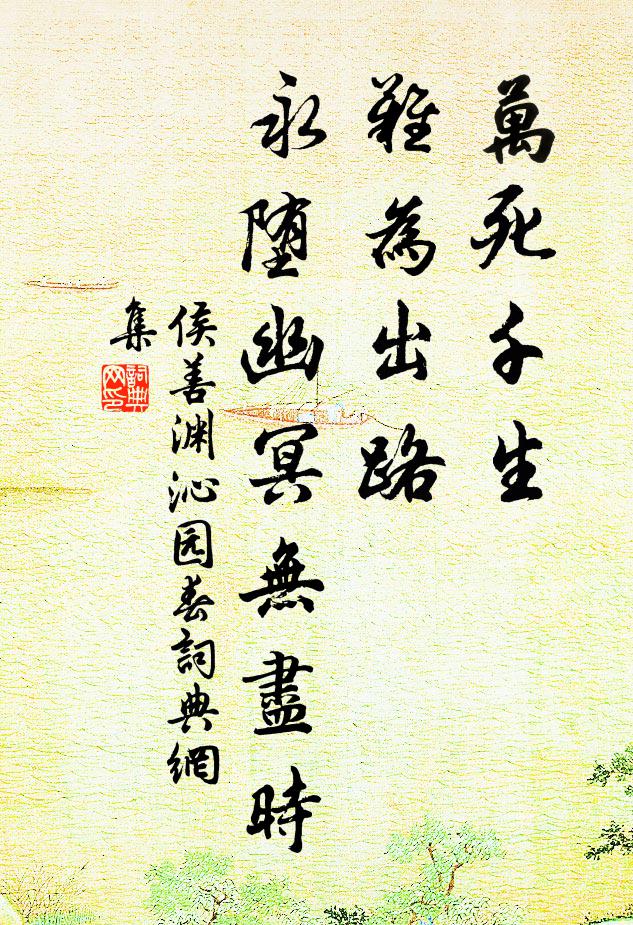 萬死千生
難為出路
永堕幽冥無盡時
侯善渊沁园春詞典網
集
詞典网印